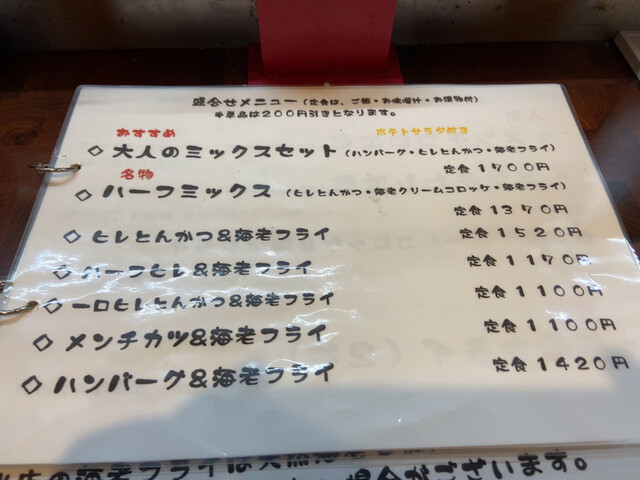 盛合せメニュー(定食は、ご飯・お味噌汁・お漬物付)
※単品は200円引きとなります。
おすすめ ポテトサラダ付き
◇ 大人のミックスセット(ハンバーグ・ヒレとんかつ・海老フライ)
定食1700円
名物
◇ ハーフミックス(ヒレとんかつ・海老クリームコロッケ・海老フライ)
定食1370円
◇ ヒレとんかつ&海老フライ 定食1520円
◇ ハーフヒレ&海老フライ 定食1170円
◇ 一口ヒレとんかつ&海老フライ 定食1100円
◇ メンチカツ&海老フライ 定食1100円
◇ ハンバーグ&海老フライ 定食1420円
の海老フライは天然海老